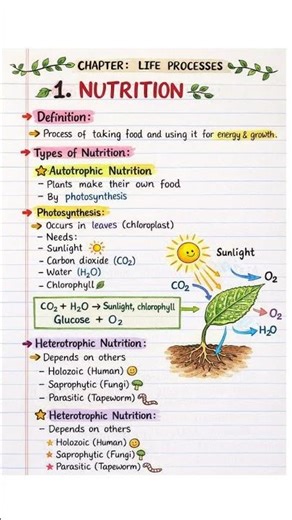 CHAPTER: LIFE PROCESSES
1. NUTRITION
Definition:
Process of taking food and using it for energy & growth.
Types of Nutrition:
Autotrophic Nutrition
- Plants make their own food
- By photosynthesis
Photosynthesis:
Occurs in leaves (chloroplast)
- Needs:
- Sunlight
- Carbon dioxide (CO₂)
- Water (H₂O)
- Chlorophyll
Sunlight
CO₂
O₂
O₂
H₂O
CO₂ + H₂O → Sunlight, chlorophyll
Glucose + O₂
Heterotrophic Nutrition:
Depends on others
- Holozoic (Human)
- Saprophytic (Fungi)
- Parasitic (Tapeworm)
Heterotrophic Nutrition:
- Depends on others
Holozoic (Human)
Saprophytic (Fungi)
Parasitic (Tapeworm)